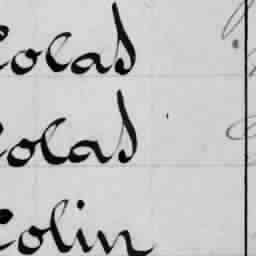 Colas
Colas
Colin